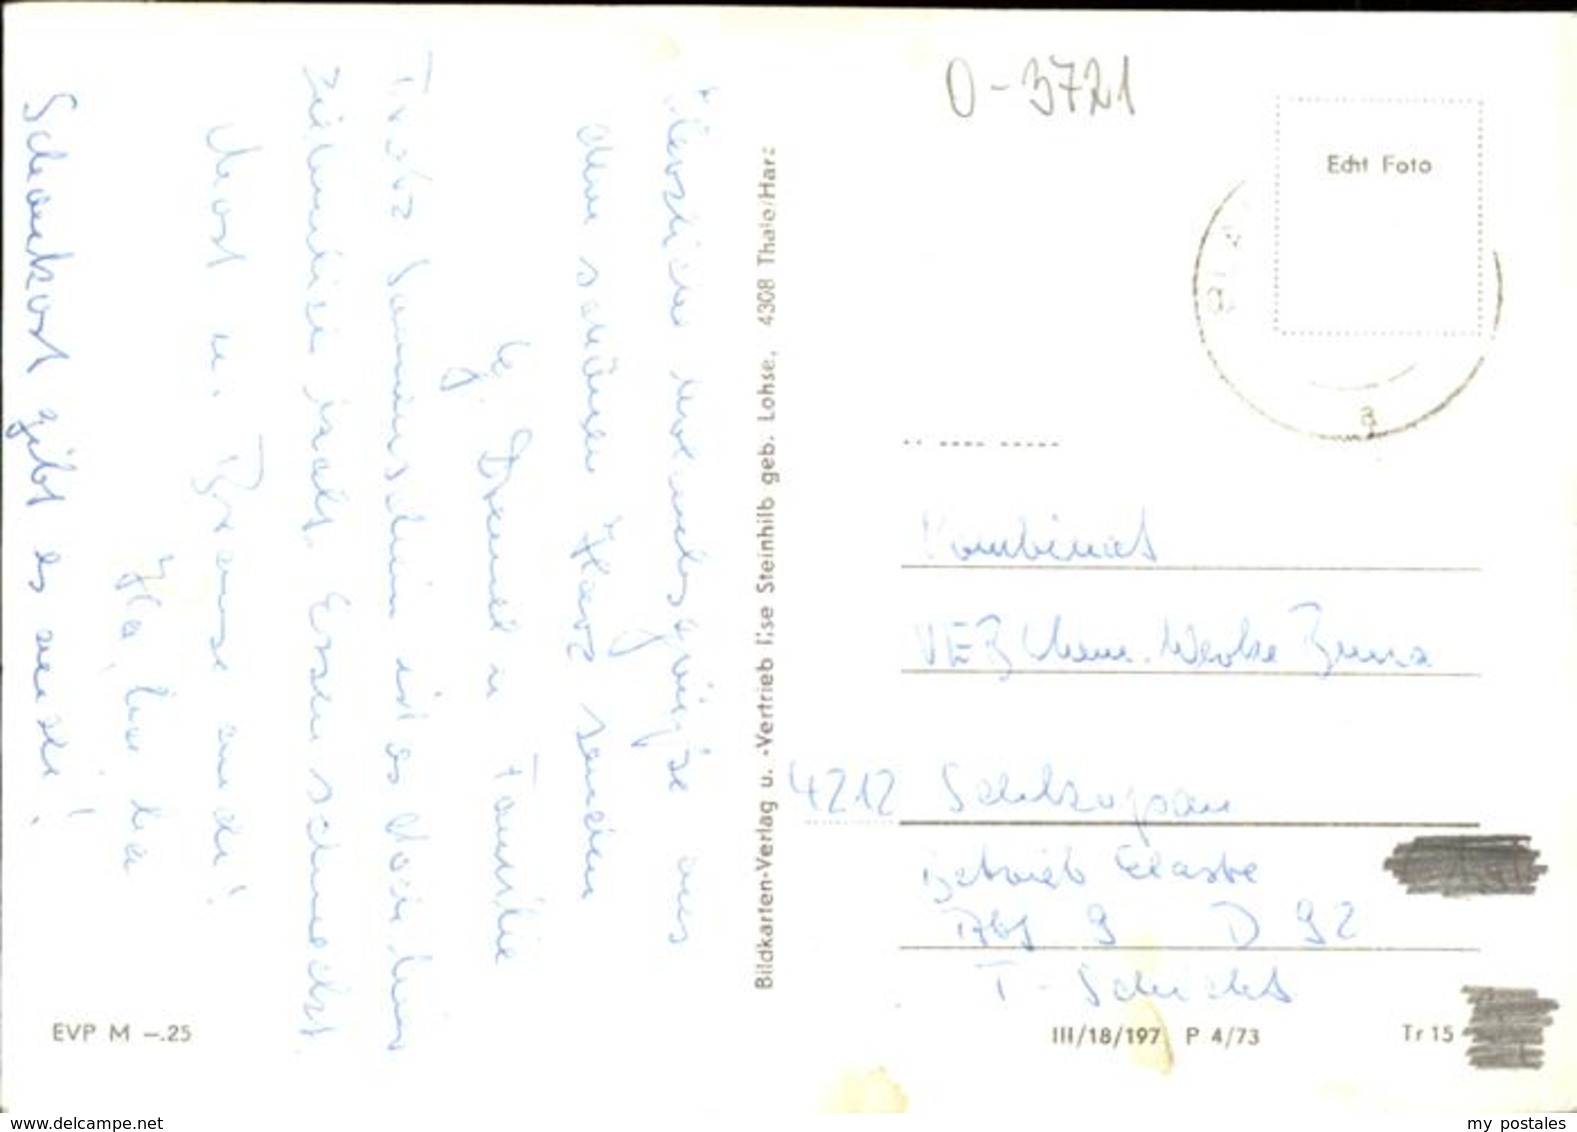 Herzliche Urlaubsgrüße aus
dem schönen Harz senden
G. Dremel u Familie
Trotz Sonnenschein ist es doch hier
ziemlich kalt. Essen schmeckt.
Most u. Brause auch!
Ha, ha ha
Schonkost gibt es auch!
EVP M –.25
Bildkarten-Verlag u. -Vertrieb Ilse Steinhilb geb. Lohse, 4308 Thale/Harz
O-3721
Echt Foto
a
Kombinat
VEB Chem. Werke Buna
4212 Schkopau
Betrieb Elaste
Abt 9 D 92
T-Schicht
III/18/197 P 4/73
Tr 15
www.delcampe.net
my postales